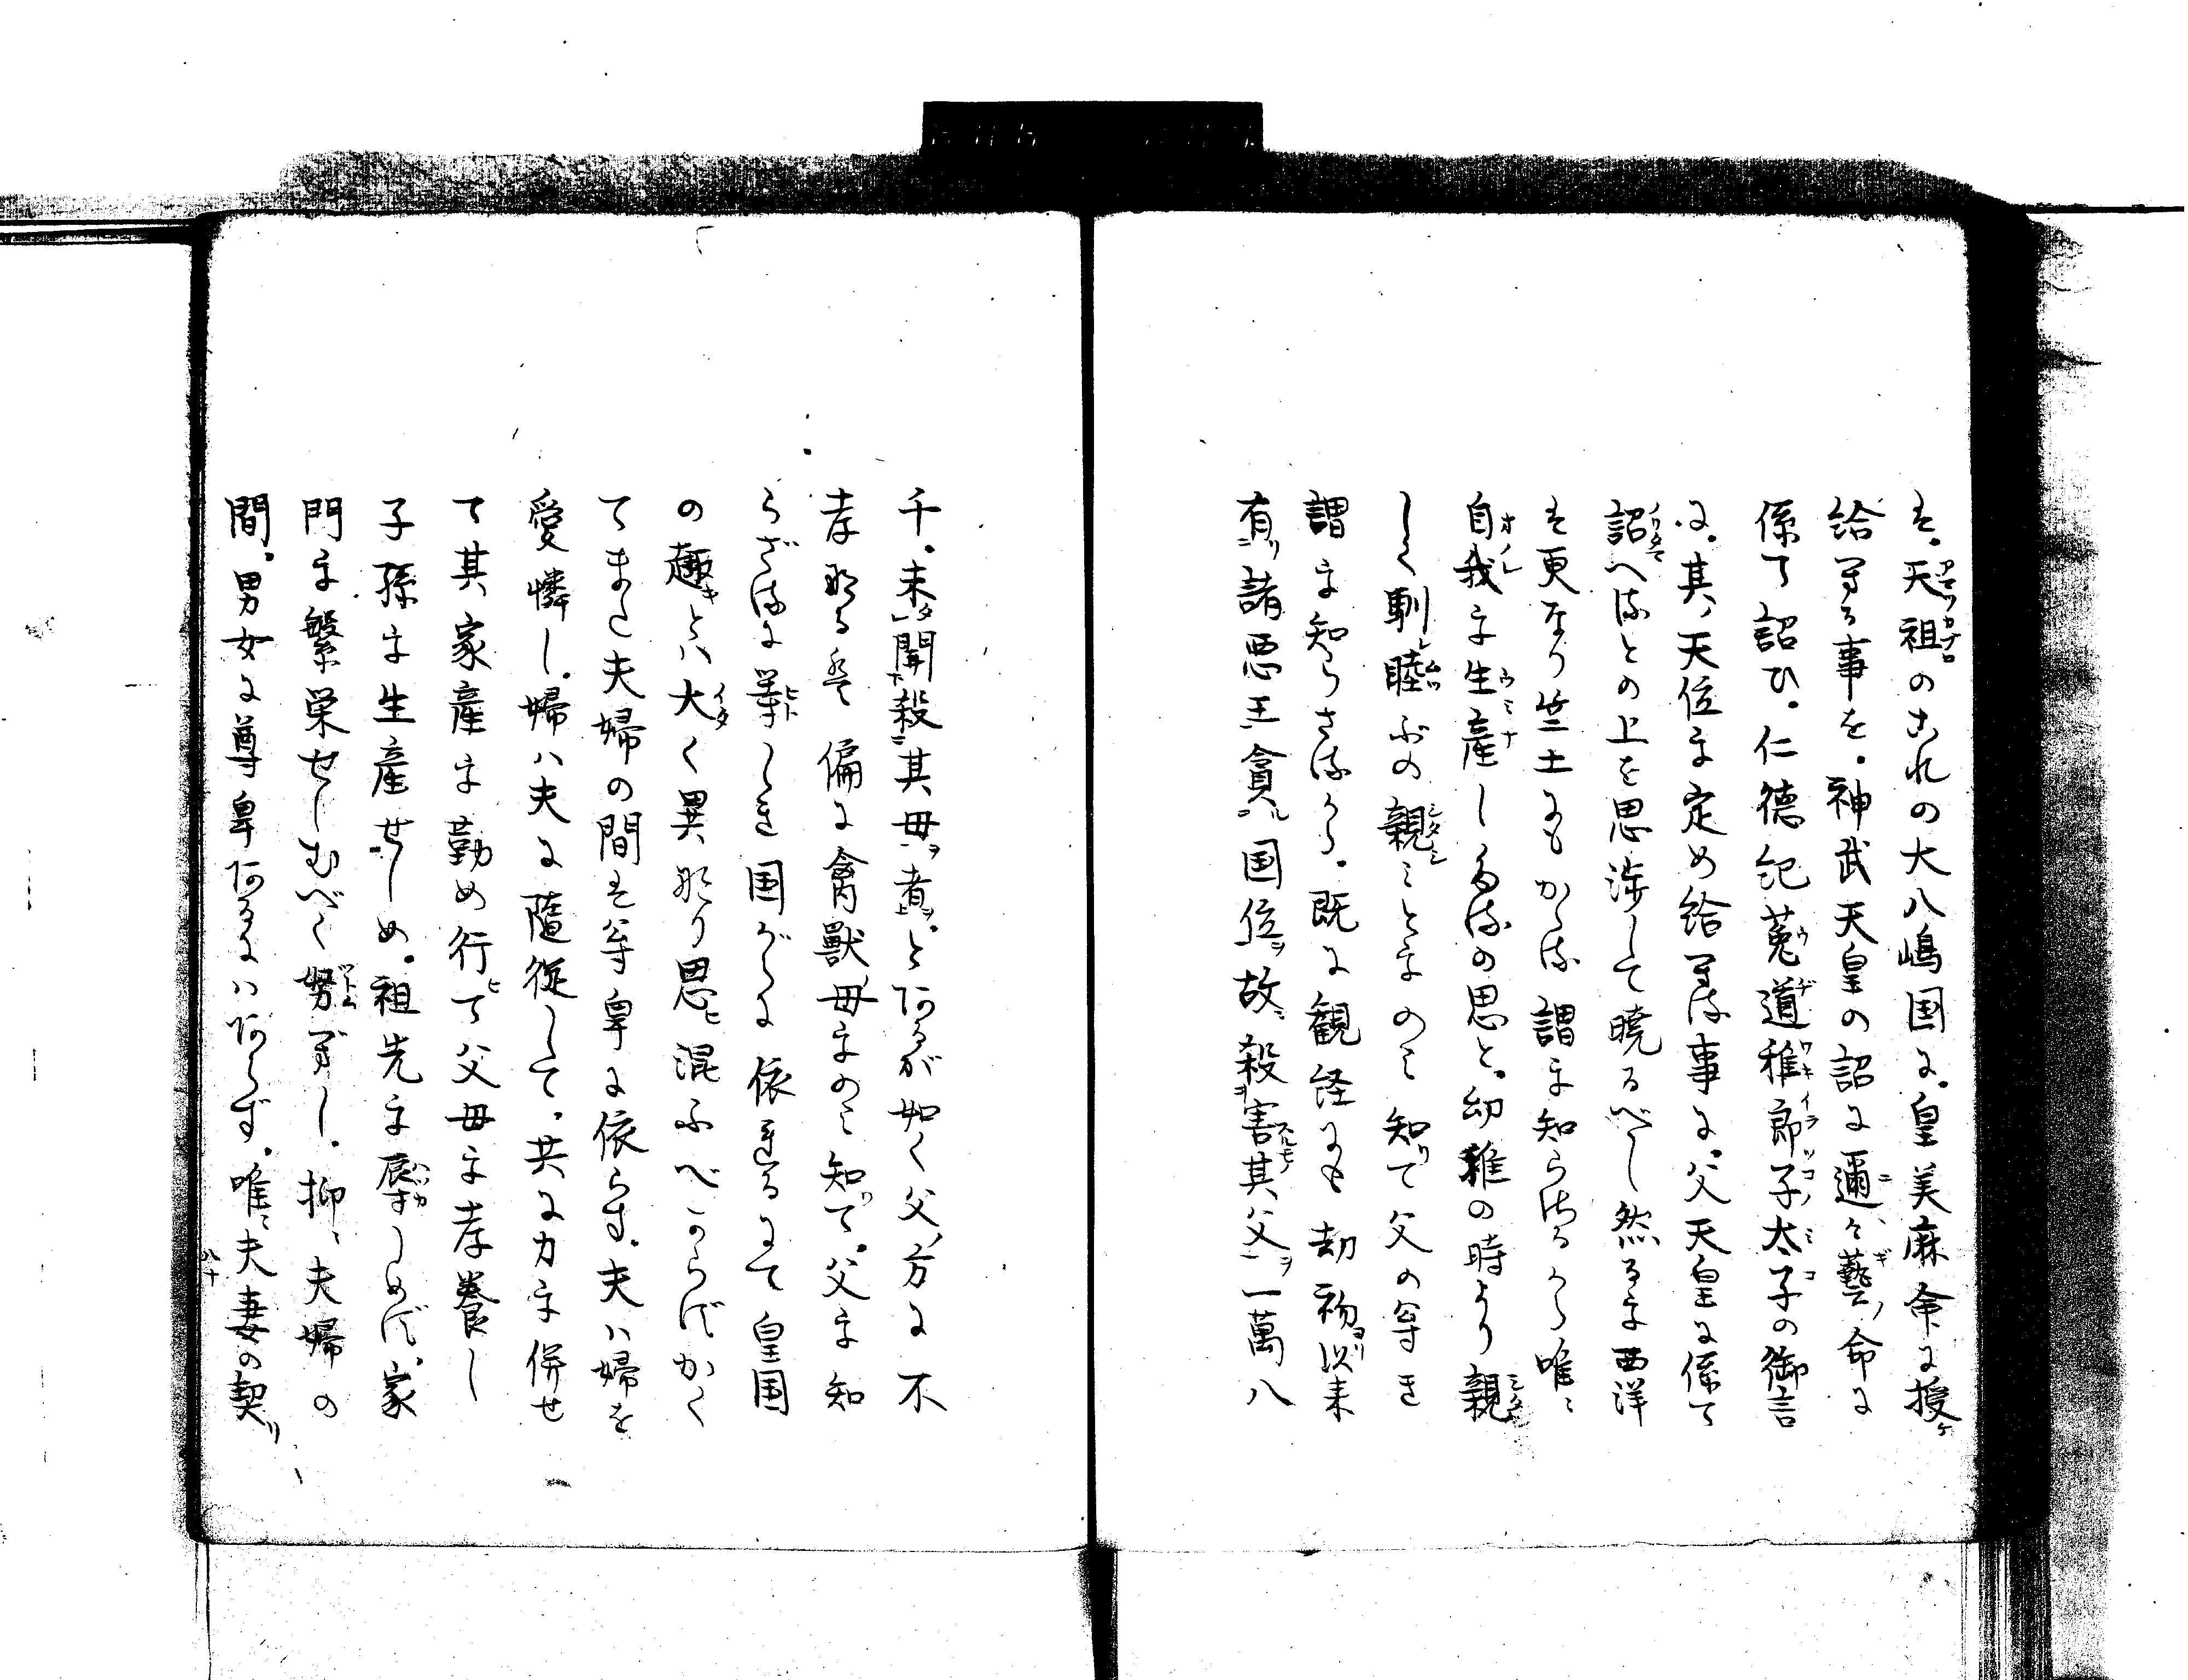 は。天祖のこれの大八嶋国に。皇美麻命に授ヶ
給へる事を。神武天皇の詔に邇々藝ノ命に
係て詔ひ。仁徳紀菟道稚郎子太子の御言
に。其ノ天位を定め給へる事に。父天皇に係て
詔へるとの上を思渉して暁るべし然るを西洋
は更なり竺土にもかゝる謂を知らざるから唯ニ
自我を生産しゝるの思と。幼稚の時より親
しく馴レ睦ぶの親ミとをのミ知りて父の尊き
謂を知らざるから。既に観経にも劫初ヨリ以来
有リ諸悪王貪ル国位ヲ故ニ殺ヲ害スルモノ其父ヲ一萬八
千。未タ聞殺ニ其母ヲ者ヲとあるが如く父ノ方に不
孝なるは 偏に禽獣ノ母をのミ知リて。父を知
らざるに等しき国がらに依るにて皇国
の趣キとハ大く異なり思ヒ混ふべからずかく
てまた夫婦の間は尊卑に依らず。夫ハ婦を
愛憐し。婦ハ夫に随従して。共に力を併せ
て其家産を勤め行ヒて父母を孝養し
子孫を生産せしめ。祖先を辱しめず。家
門を繁栄せしむべく努べし。抑ゝ夫婦の
間。男女に尊卑あるにハあらず。唯ゝ夫妻の契リ
八十